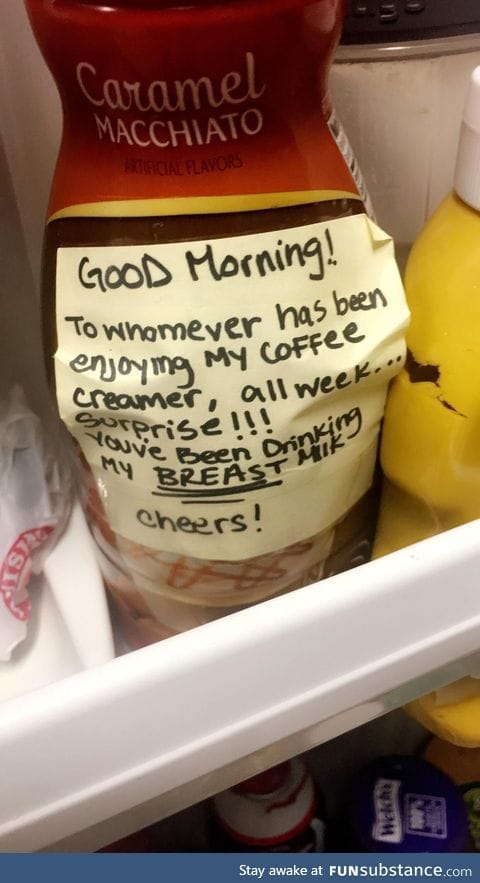 Caramel
MACCHIATO
ARTIFICIAL FLAVORS
GOOD Morning!
To whomever has been
enjoying MY COFFEE
creamer, all week...
surprise!!!
You've Been Drinking
MY BREAST MILK
cheers!
Welch's
100%
Stay awake at FUNsubstance.com